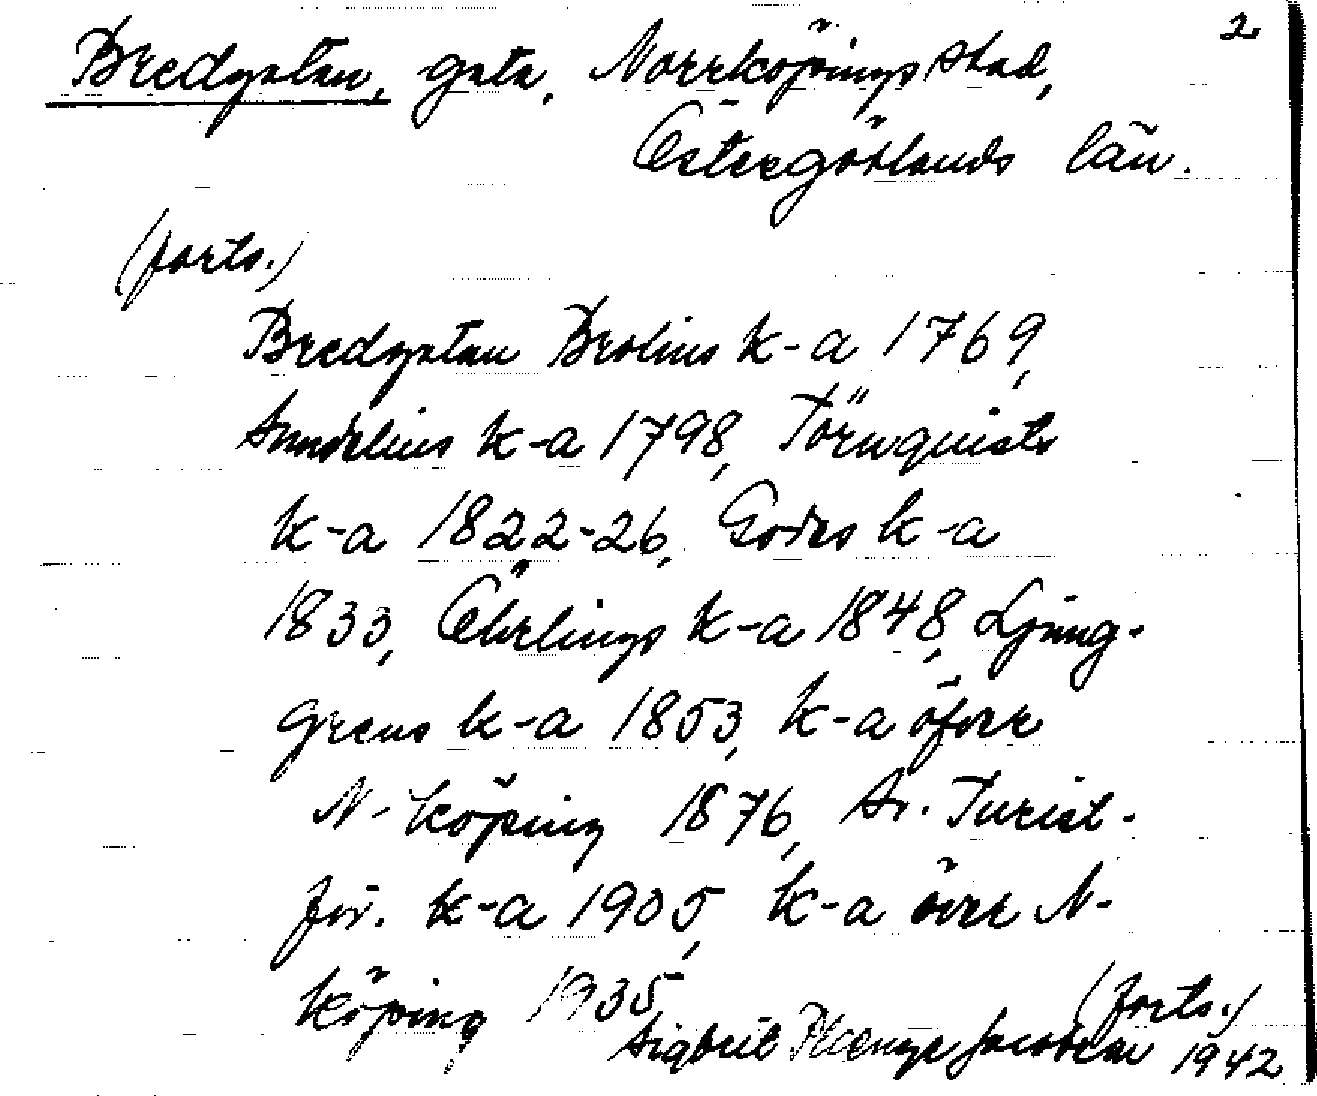 2
Bredgatan, gata, Norrköpings stad,
Östergötlands län.
(forts.)
Bredgatan Brolins k-a 1769,
Sundelius k-a 1798, Törnquists
k-a 1822-26, Godes k-a
1833, Öhrlings k-a 1848, Ljung-
grens k-a 1853, k-a öfver
N-köping 1876, Sv. Turist-
för. k-a 1905, k-a över N-
köping 1935
(forts.)
Sigbrit Plænge Jacobson 1942